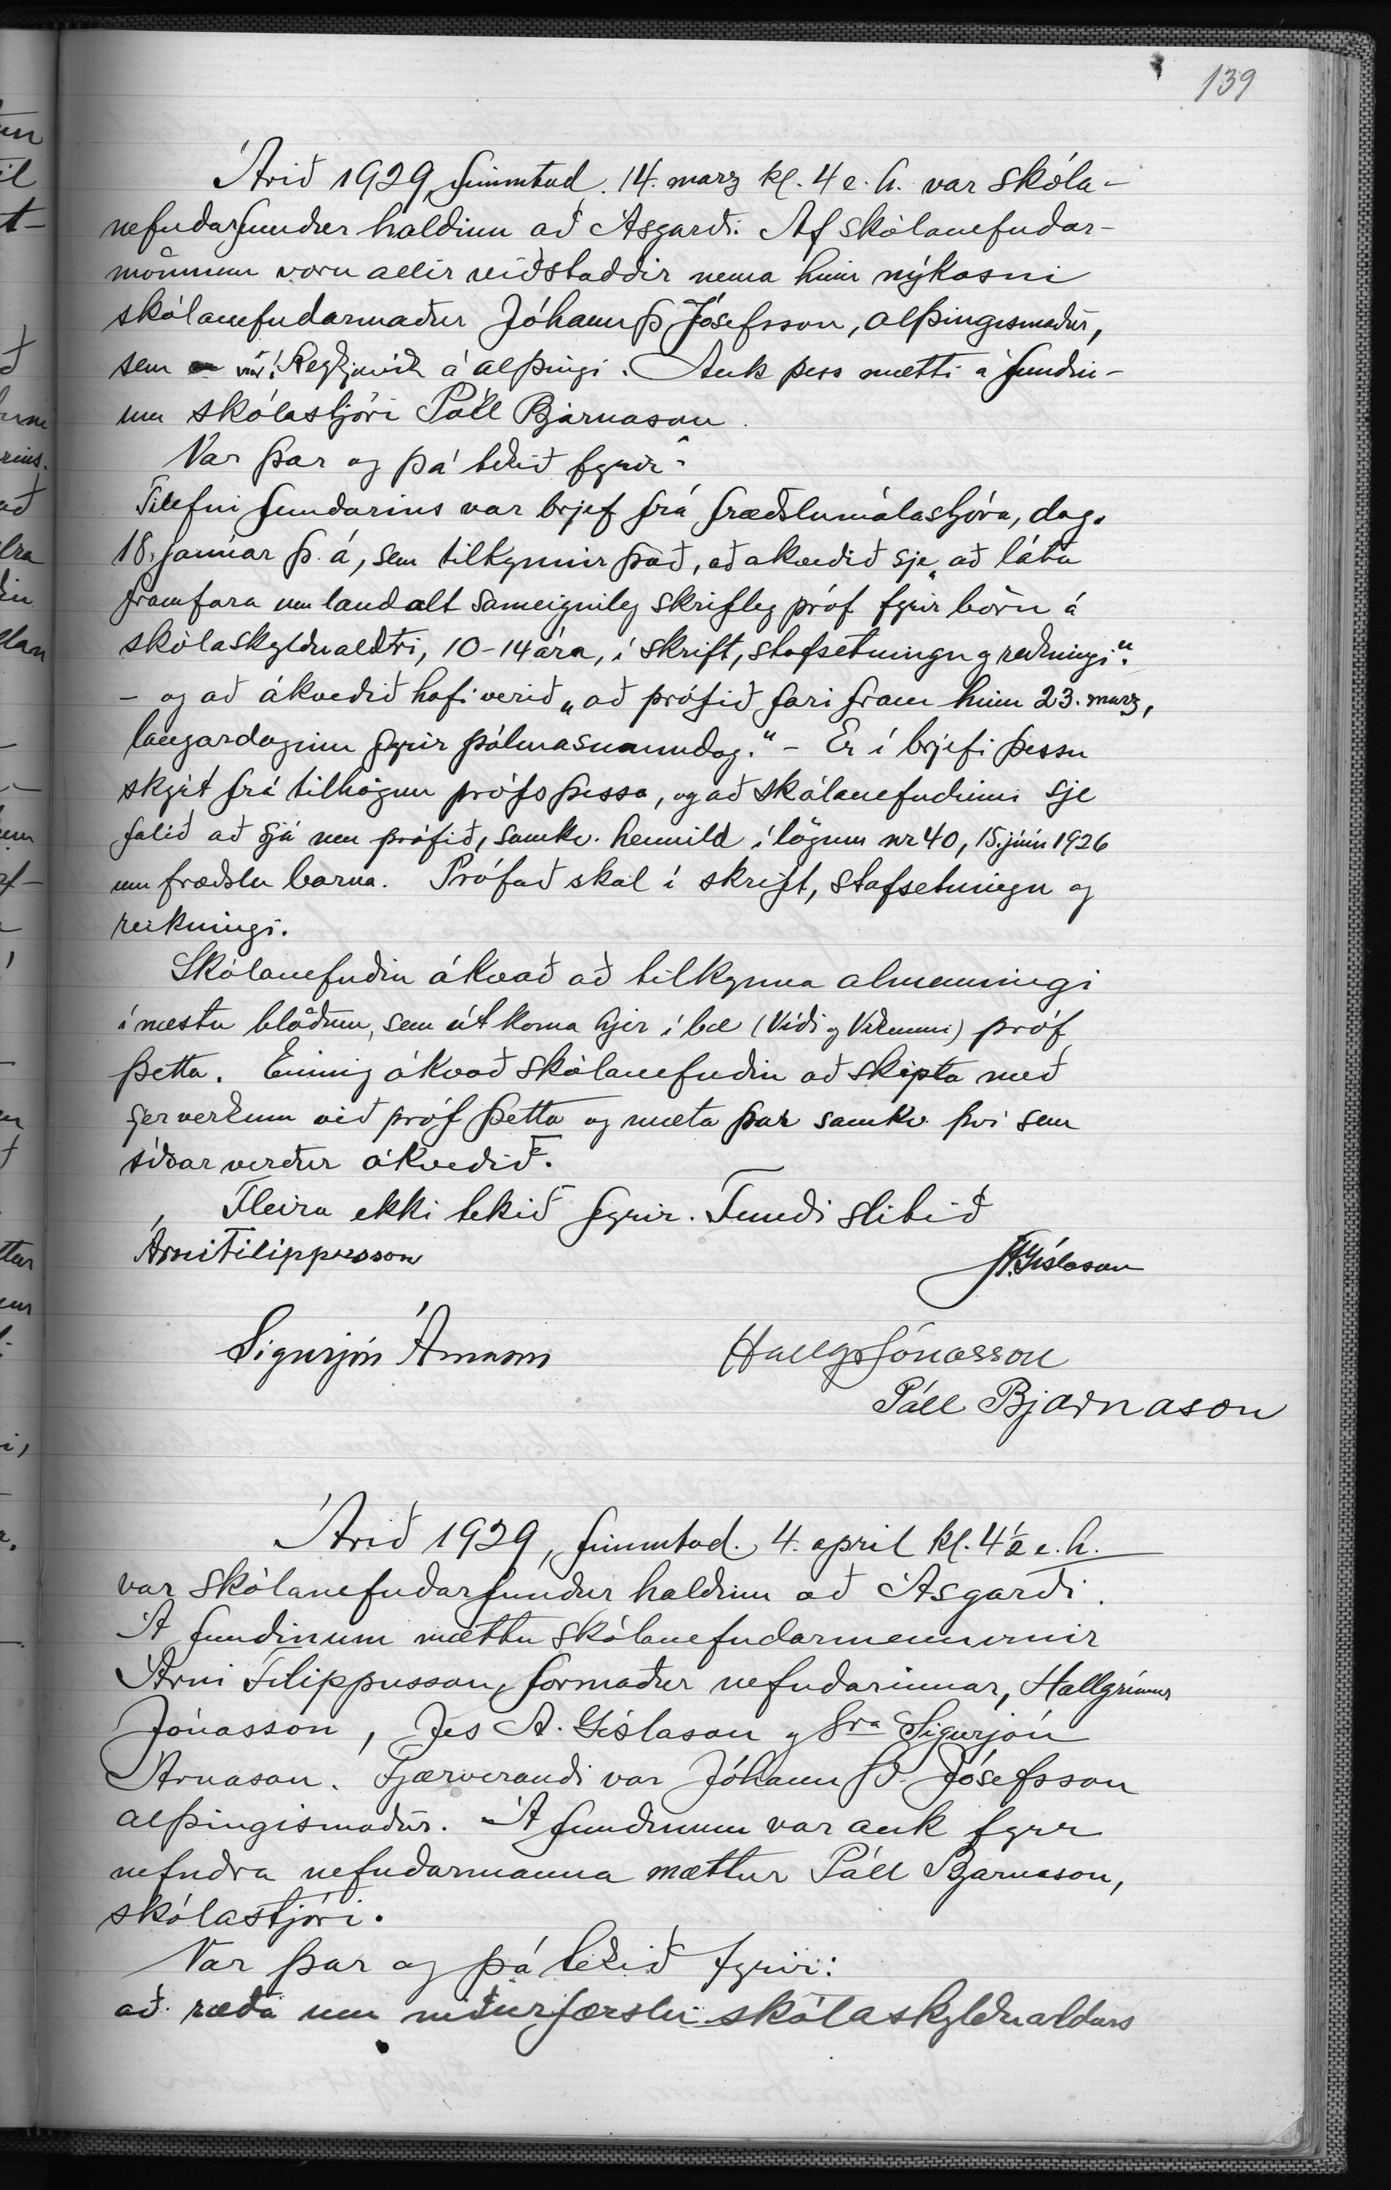 139
Árið 1929, fimmtud. 14. marz kl. 4 e. h. var skóla-
nefndarfundur haldinn að Ásgarði. Af skólanefndar-
mönnum voru allir viðstaddir nema hinn nýkosni
skólanefndarmaður Jóhann Þ Jósefsson, alþingismaður,
sem var í Reykjavík á alþingi. Auk þess mætti á fundin-
um skólastjóri Páll Bjarnason.
Var þar og þá tekið fyrir:
Tilefni fundarins var brjef frá fræðslumálastjóra, dag.
18. janúar þ. á, sem tilkynnir það, að ákveðið sje „að láta
framfara um land alt sameiginleg skrifleg próf fyrir börn á
skólaskyldualdri, 10-14 ára, í skrift, stafsetningu og reikningi“.
- og að ákveðið hafi verið „að prófið fari fram hinn 23. marz,
laugardaginn fyrir pálmasunnudag.“ - Er í brjefi þessu
skýrt frá tilhögun prófs þessa, og að skólanefndinni sje
falið að sjá um prófið, samkv. heimild í lögum nr 40, 15. júní 1926
um fræðslu barna. Prófað skal í skrift, stafsetningu og
reikningi.
Skólanefndin ákvað að tilkynna almenningi
í næstu blöðum, sem út koma hjer í bæ (Víði og Vikunni) próf
þetta. Einnig ákvað skólanefndin að skipta með
sjer verkum við próf þetta og mæta þar samkv. því sem
síðar verður ákveðið.
Fleira ekki tekið fyrir. Fundi slitið
Árni Filippusson
J. A. Gíslason
Sigurjón Árnason
Hallgr Jónasson
Páll Bjarnason
Árið 1929, fimmtud. 4. apríl kl. 4½ e. h.
var skólanefndarfundur haldinn að Ásgarði.
Á fundinum mættu skólanefndarmennirnir
Árni Filippusson, formaður nefndarinnar, Hallgrímur
Jónasson, Jes A. Gíslason og Sra Sigurjón
Árnason. Fjærverandi var Jóhann Þ. Jósefsson
alþingismaður. Á fundinum var auk fyrr
nefndra nefndarmanna mættur Páll Bjarnason,
skólastjóri.
Var þar og þá tekið fyrir:
að ræða um niðurfærslu skólaskyldualdurs